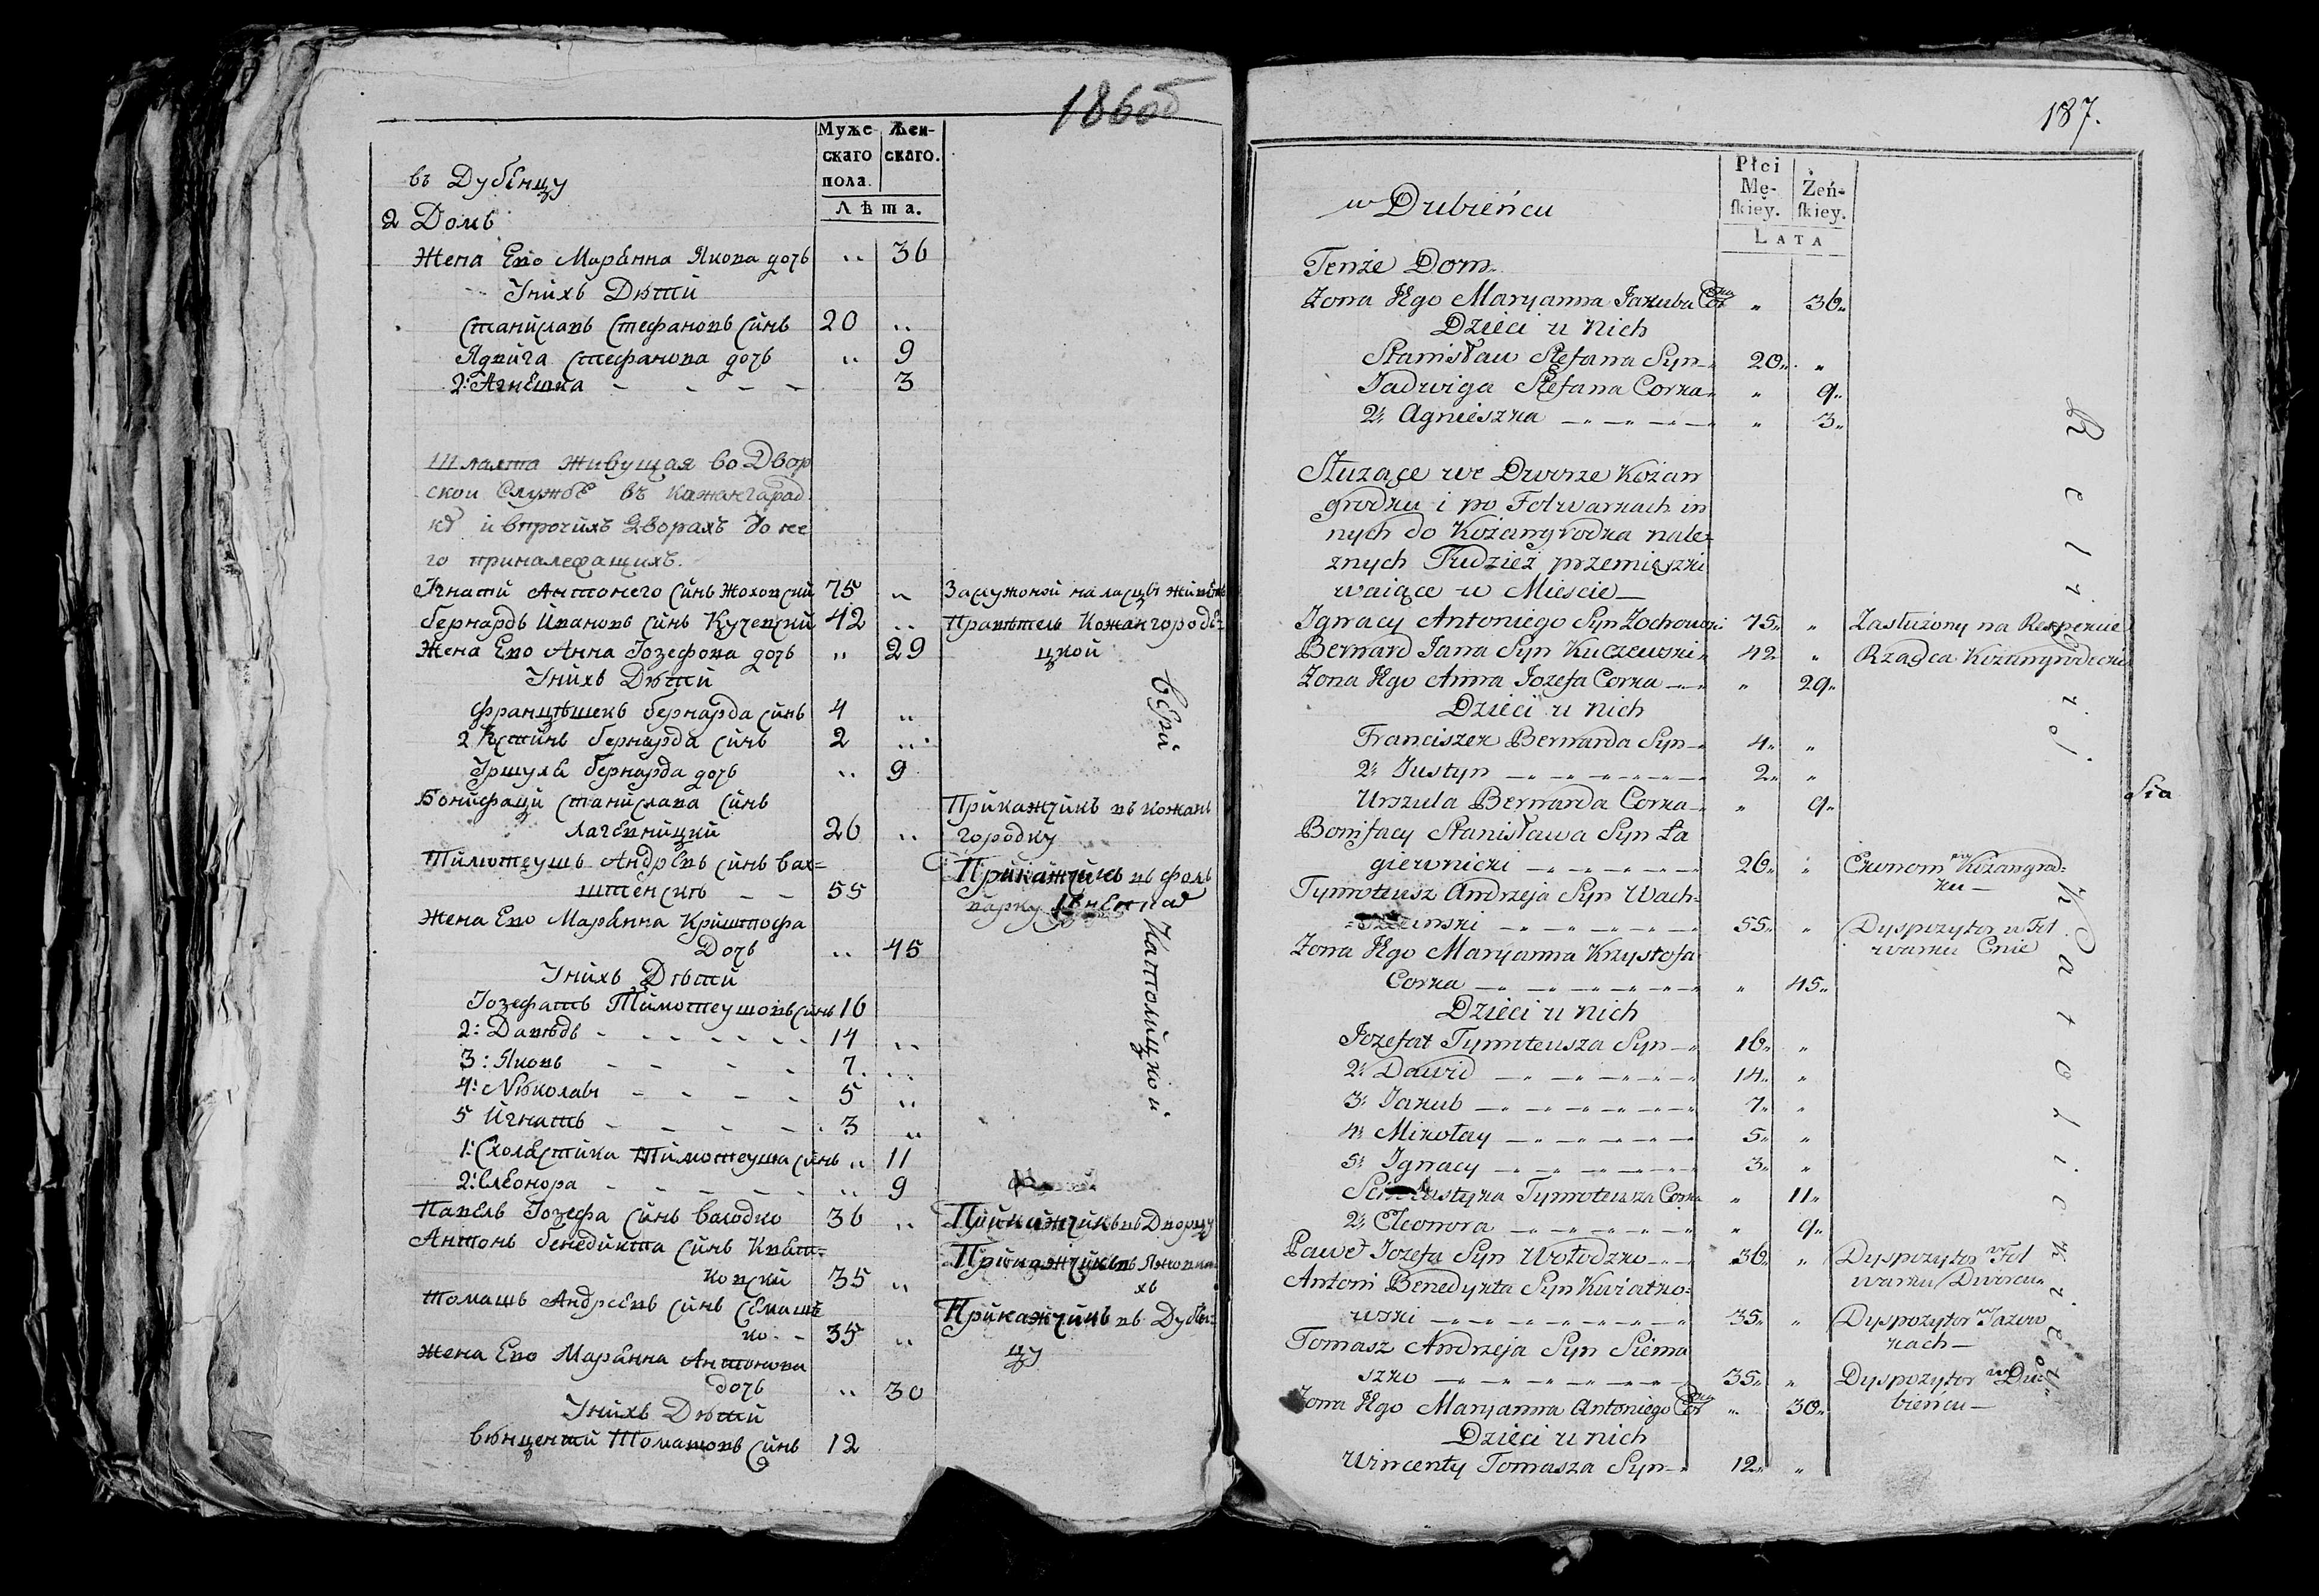 186об
Муже-
скаго
пола.
Жен-
скаго.
Лѣта.
въ Дубенцу
2 Домъ
Жена Его Марьянна Якова дочь " 36
У нихъ Дѣтй
Станиславъ Стефановъ Синъ 20 "
Ядвига Стефанова дочь " 9
2: Агнешка - - - - 3
Шляхта живущая во Двор
скои Службѣ въ Кажангарад
кѣ и впрочихъ Дворахъ до не
го приналежащихъ.
Игнатй Антонего Синъ Жоховскй 75 " Заслужоной на ласцы
Бернардъ Ивановъ Синъ Кучевскй 42 " Правѣтель Кожангородѣ-
Жена Его Анна Іозефова дочь " 29 цкой
У нихъ Дѣтй
Францѣшекъ Бернарда Синъ 4 "
2 Юстинъ Бернарда Синъ 2 "
Уршуля Бернарда дочь " 9
Бонифаци Станислава Синъ Прикажчикъ въ Кожанъ
Лагевницкй 26 " городку
Тимотеушъ Андрѣевъ Синъ Вах= Прикажчикъ въ фоль
штенскй - - 55 варку
Жена Его Марьянна Криштофа
Дочь " 45
У нихъ Дѣтй
Іозефатъ Тимотеушовъ Синъ 16
2: Давѣдъ - - - - - 14 "
3: Яковъ - - - - 7 "
4: Николай - - - - 5 "
5 Игнатъ - - - - 3 "
1: Схолястика Тимотеуша Синъ " 11
2: Елеонора - - - - - " 9
Павелъ Іозефа Синъ Валодко 36 " Прикажчикъ въ Дворцу
Антонъ Бенедикта Синъ Квят= Прикажчикъ въ Язовках
ковскй 35 " хъ
Томашъ Андреевъ Синъ Семаш Прикажчикъ въ Дубен-
ко - 35 " цу
Жена Его Марьянна Антонова
дочь " 30
У нихъ Дѣтй
Вѣнцентй Томашовъ Синъ 12
Вери
Католицкой
187.
Płci
Mę-
skiey.
Żeń-
skiey.
LATA
w Dubieńcu
Tenże Dom
Zona Jego Maryanna Jakuba Corka " 36"
Dzieci u Nich
Stanisław Stefana Syn 20" "
Jadwiga Stefana Corka " 9"
2: Agnieszka " 3"
Służące we Dworze Kożan
grodku i po Folwarkach in
nych do Kożangrodka nale=
znych Tudzież przemieszki
waiące w Mieście
Ignacy Antoniego Syn Zochowski 75" " Zasłużony na Respekcie
Bernard Jana Syn Kuczewski 42 " Rządca Kożangrodecki
Zona Jego Anna Jozefa Corka " 29"
Dzieci u nich
Franciszek Bernarda Syn 4" "
2: Justyn 2" "
Urszula Bernarda Corka " 9"
Bonifacy Stanisława Syn Ła
giewnicki 26" " Ekonom przy Kożangrod=
ku
Tymoteusz Andrzeja Syn Wach-
55" " Dyspozytor w Fol
Zona Jego Maryanna Krzysztofa warku Cnie
Corka " 45"
Dzieci u nich
Jozefat Tymoteusza Syn 16" "
2: Dawid 14" "
3: Jakub 7" "
4: Mikołay 5" "
5: Ignacy 3" "
Tymoteusza Corka " 11"
2: Eleonora " 9"
Paweł Jozefa Syn Wołodzko 36" " Dyspozytor w Fol
warku Dworcu
Antoni Benedykta Syn Kwiatko=
wski 35" " Dyspozytor w Jazow
kach
Tomasz Andrzeja Syn Siema
szko 35" " Dyspozytor w Du-
bieńcu
Zona Jego Maryanna Antoniego Corka " 30"
Dzieci u nich
Wincenty Tomasza Syn 12" "
Religii
Katolickiey
Sia